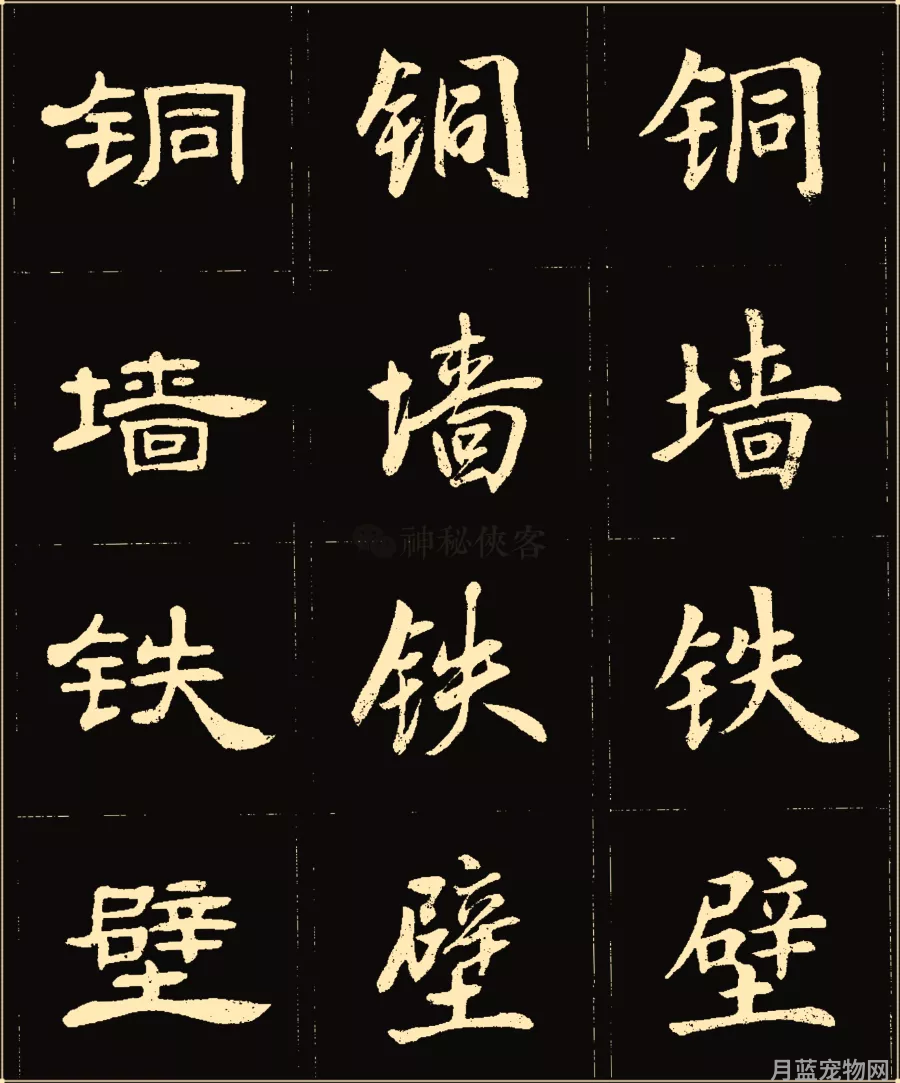 铜 铜 铜
墙 墙 墙
神秘侠客
铁 铁 铁
壁 壁 壁
月蓝宠物网